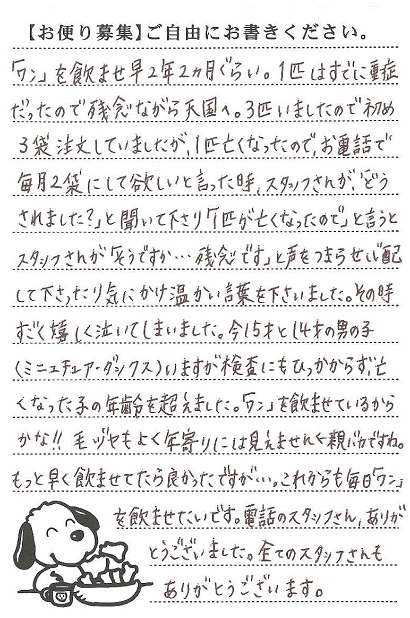 【お便り募集】ご自由にお書きください。
「ワン」を飲ませ早2年2ヵ月ぐらい。1匹はすでに重症
だったので残念ながら天国へ。3匹いましたので初め
3袋注文していましたが、1匹亡くなったので、お電話で
毎月2袋にして欲しいと言った時、スタッフさんが、「どう
されました?」と聞いて下さり「1匹が亡くなったので」と言うと
スタッフさんが「そうですか…残念です」と声をつまらせ心配
して下さったり気にかけ温かい言葉を下さいました。その時
すごく嬉しく泣いてしまいました。今15才と14才の男の子
(ミニュチュア・ダックス)いますが検査にもひっかからず、亡
くなった子の年齢を超えました。「ワン」を飲ませているから
かな!!毛ヅヤもよく年寄りには見えませんく親バカですね。
もっと早く飲ませてたら良かったですが…。これからも毎日「ワン」
を飲ませたいです。電話のスタッフさん、ありが
とうございました。全てのスタッフさんも
ありがとうございます。